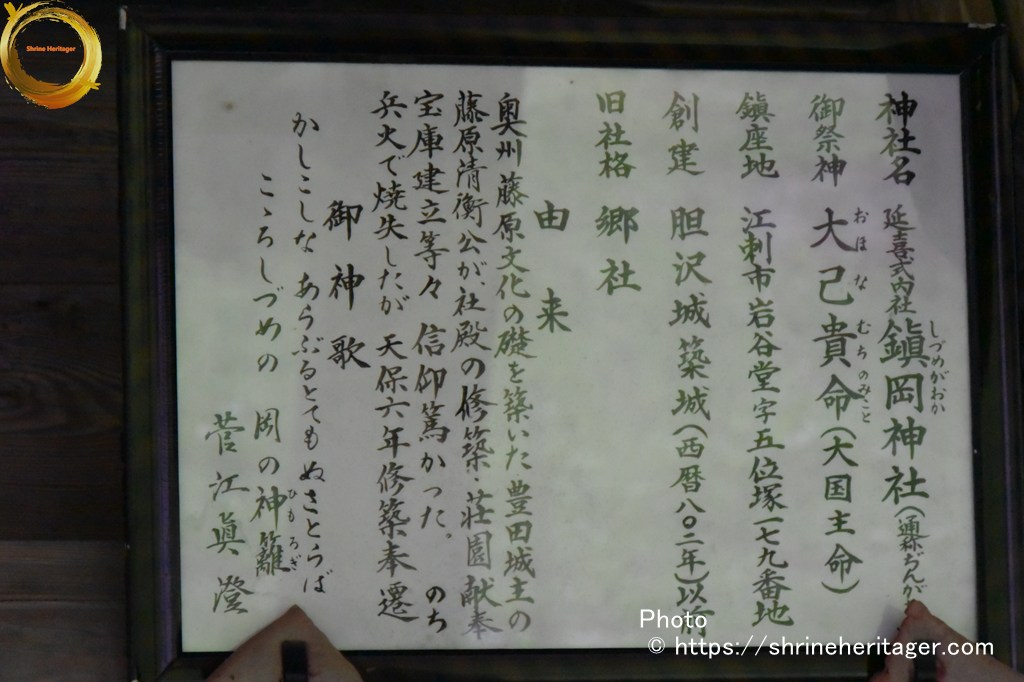 神社名 延喜式内社 鎭岡神社(通称ぢんが
しづめがおか
御祭神 大己貴命(大国主命)
おほなむちのみこと
鎭座地 江刺市岩谷堂字五位塚一七九番地
創建 胆沢城築城(西暦八〇二年)以前
旧社格 郷社
由来
奥州藤原文化の礎を築いた豊田城主の
藤原清衡公が、社殿の修築・荘園献奉
宝庫建立等々 信仰篤かった。 のち
兵火で焼失したが 天保六年修築奉遷
御神歌
かしこしな あらぶるとても ぬさとらば
こゝろしづめの 岡の神籬
ひもろぎ
菅江眞澄
Shrine Heritager
Photo
© https://shrineheritager.com